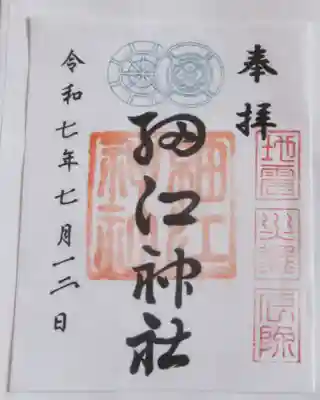 奉拝
地震
消除
細江神社
細江神社
令和七年七月十二日